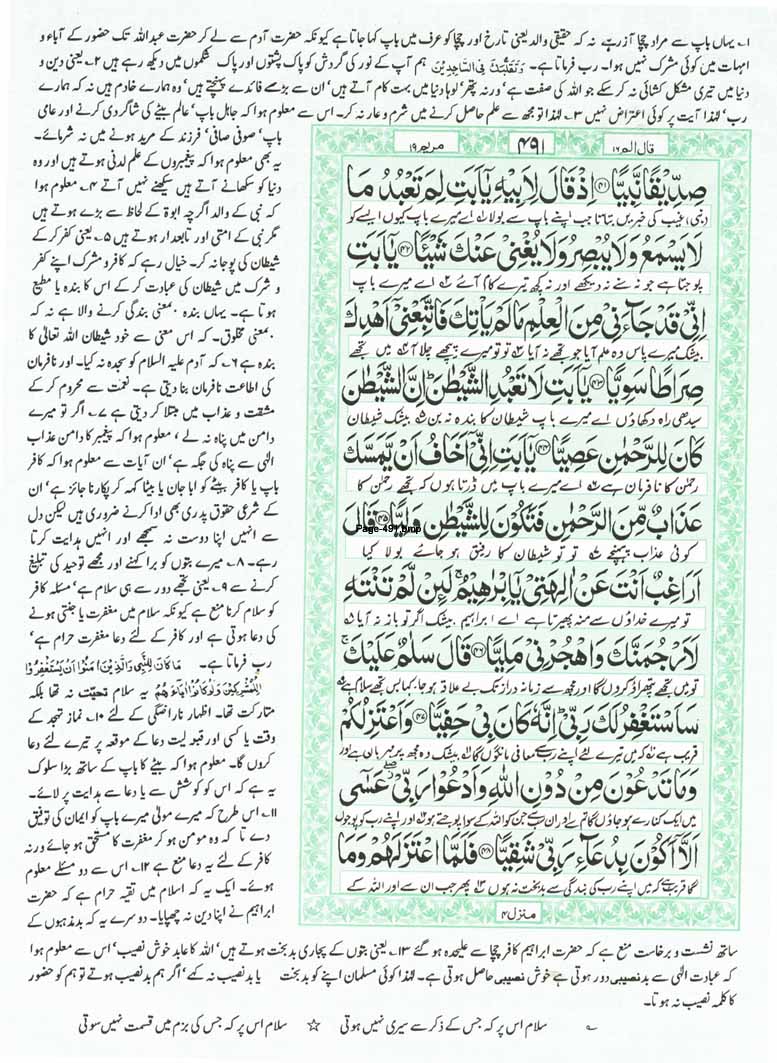 ۱؎ یہاں باپ سے مراد چچا آزر ہے نہ کہ حقیقی والد یعنی تارخ اور چچا کو عرف میں باپ کہا جاتا ہے کیونکہ حضرت آدم سے لے کر حضرت عبداللہ تک حضور کے آباء و
امہات میں کوئی مشرک نہیں ہوا۔ رب فرماتا ہے۔ وَتَقَلُّبَكَ فِي السَّاجِدِيْنَ ہم آپ کے نور کی گردش کو پاک پشتوں اور پاک شکموں میں دیکھ رہے ہیں ۲؎ یعنی دین و
دنیا میں تیری مشکل کشائی نہ کر سکے جو الہ کی صفت ہے، ورنہ پتھر، لوہا دنیا میں بہت کام آتے ہیں، ان سے بڑے بڑے فائدے پہنچتے ہیں، وہ ہمارے خادم ہیں نہ کہ ہمارے
رب، لہٰذا آیت پر کوئی اعتراض نہیں ۳؎ لہٰذا تو مجھ سے علم حاصل کرنے میں شرم و عار نہ کر۔ اس سے معلوم ہوا کہ جاہل باپ، عالم بیٹے کی شاگردی کرنے اور عامی
باپ، صوفی صافی، فرزند کے مرید ہونے میں نہ شرمائے۔
یہ بھی معلوم ہوا کہ پیغمبروں کے علم لدنی ہوتے ہیں اور وہ
دنیا کو سکھانے آتے ہیں سیکھنے نہیں آتے ۴؎ معلوم ہوا
کہ نبی کے والد اگرچہ ابوۃ کے لحاظ سے بڑے ہوتے ہیں
مگر نبی کے امتی اور تابعدار ہوتے ہیں ۵؎ یعنی کفر کر کے
شیطان کی پوجا نہ کر۔ خیال رہے کہ کافر و مشرک اپنے کفر
و شرک میں شیطان کی عبادت کر کے اس کا بندہ یا مطیع
ہوتا ہے۔ یہاں بندہ بمعنی بندگی کرنے والا ہے نہ کہ
بمعنی مخلوق۔ کہ اس معنی سے خود شیطان اللہ تعالیٰ کا
بندہ ہے ۶؎ کہ آدم علیہ السلام کو سجدہ نہ کیا۔ اور نافرمان
کی اطاعت نافرمان بنا دیتی ہے۔ نعمت سے محروم کر کے
مشقت و عذاب میں مبتلا کر دیتی ہے ۷؎ اگر تو میرے
دامن میں پناہ نہ لے، معلوم ہوا کہ پیغمبر کا دامن عذاب
الٰہی سے پناہ کی جگہ ہے، ان آیات سے معلوم ہوا کہ کافر
باپ یا کافر بیٹے کو ابا جان یا بیٹا کہہ کر پکارنا جائز ہے، ان
کے شرعی حقوق پدری بھی ادا کرنے ضروری ہیں لیکن دل
سے انہیں اپنا دوست نہ سمجھے اور انہیں ہدایت کرتا
رہے۔ ۸؎ میرے بتوں کو برا کہنے اور مجھے توحید کی تبلیغ
کرنے سے ۹؎ یعنی تجھے دور سے ہی سلام ہے، مسئلہ کافر
کو سلام کرنا منع ہے کیونکہ سلام میں مغفرت یا جنتی ہونے
کی دعا ہوتی ہے اور کافر کے لئے دعا مغفرت حرام ہے،
رب فرماتا ہے۔ مَا كَانَ لِلنَّبِيِّ وَالَّذِيْنَ اٰمَنُوْا اَنْ يَّسْتَغْفِرُوْا
لِلْمُشْرِكِيْنَ وَلَوْ كَانُوْا اٰبَاءَهُمْ یہ سلام تحیت نہ تھا بلکہ
متارکت تھا۔ اظہار ناراضگی کے لئے ۱۰؎ نماز تہجد کے
وقت یا کسی اور قبولیت دعا کے موقعہ پر تیرے لئے دعا
کروں گا۔ معلوم ہوا کہ بیٹے کا باپ کے ساتھ بڑا سلوک
یہ ہے کہ اس کو کوشش سے یا دعا سے ہدایت پر لائے۔
۱۱؎ اس طرح کہ میرے مولیٰ میرے باپ کو ایمان کی توفیق
دے تا کہ وہ مومن ہو کر مغفرت کا مستحق ہو جائے ورنہ
کافر کے لئے یہ دعا منع ہے ۱۲؎ اس سے دو مسئلے معلوم
ہوئے۔ ایک یہ کہ اسلام میں تقیہ حرام ہے کہ حضرت
ابراہیم نے اپنا دین نہ چھپایا۔ دوسرے یہ کہ بدمذہبوں کے
قال الم ۱۶
۴۹۱
مریم ۱۹
صِدِّيْقًا نَّبِيًّا ﴿۴۱﴾ اِذْ قَالَ لِاَبِيْهِ يٰٓاَبَتِ لِمَ تَعْبُدُ مَا
(نبی) غیب کی خبریں بتاتا جب اپنے باپ سے بولا ۱؎ اے میرے باپ کیوں ایسے کو
لَا يَسْمَعُ وَلَا يُبْصِرُ وَلَا يُغْنِيْ عَنْكَ شَيْئًا ﴿۴۲﴾ يٰٓاَبَتِ
پوجتا ہے جو نہ سنے نہ دیکھے اور نہ کچھ تیرے کام آئے ۲؎ اے میرے باپ
اِنِّيْ قَدْ جَآءَنِيْ مِنَ الْعِلْمِ مَا لَمْ يَاْتِكَ فَاتَّبِعْنِيْٓ اَهْدِكَ
بیشک میرے پاس وہ علم آیا جو تجھے نہ آیا تو تو میرے پیچھے چلا آ ۳؎ میں تجھے
صِرَاطًا سَوِيًّا ﴿۴۳﴾ يٰٓاَبَتِ لَا تَعْبُدِ الشَّيْطٰنَ ؕ اِنَّ الشَّيْطٰنَ
سیدھی راہ دکھاؤں ۴؎ اے میرے باپ شیطان کا بندہ نہ بن ۵؎ بیشک شیطان
كَانَ لِلرَّحْمٰنِ عَصِيًّا ﴿۴۴﴾ يٰٓاَبَتِ اِنِّيْٓ اَخَافُ اَنْ يَّمَسَّكَ
رحمٰن کا نافرمان ہے ۶؎ اے میرے باپ میں ڈرتا ہوں کہ تجھے رحمٰن کا
عَذَابٌ مِّنَ الرَّحْمٰنِ فَتَكُوْنَ لِلشَّيْطٰنِ وَلِيًّا ﴿۴۵﴾ قَالَ
Page-491.bmp
کوئی عذاب پہنچے ۷؎ تو تو شیطان کا رفیق ہو جائے بولا کیا
اَرَاغِبٌ اَنْتَ عَنْ اٰلِهَتِيْ يٰٓاِبْرٰهِيْمُ ۚ لَئِنْ لَّمْ تَنْتَهِ
تو میرے خداؤں سے منہ پھیرتا ہے اے ابراہیم بیشک اگر تو باز نہ آیا ۸؎
لَاَرْجُمَنَّكَ وَاهْجُرْنِيْ مَلِيًّا ﴿۴۶﴾ قَالَ سَلٰمٌ عَلَيْكَ ۚ
تو میں تجھے پتھراؤ کروں گا اور مجھ سے زمانہ دراز تک بے علاقہ ہو جا کہا بس تجھے سلام ہے ۹؎
سَاَسْتَغْفِرُ لَكَ رَبِّيْ ؕ اِنَّهٗ كَانَ بِيْ حَفِيًّا ﴿۴۷﴾ وَاَعْتَزِلُكُمْ
قریب ہے ۱۰؎ کہ میں تیرے لئے اپنے رب سے معافی مانگوں گا ۱۱؎ بیشک وہ مجھ پر مہربان ہے اور
وَمَا تَدْعُوْنَ مِنْ دُوْنِ اللّٰهِ وَاَدْعُوْا رَبِّيْ ۖ عَسٰٓى
میں ایک کنارے ہو جاؤں گا تم سے اور ان سے جن کو اللہ کے سوا پوجتے ہو ۱۲؎ اور اپنے رب کو پوجوں
اَلَّآ اَكُوْنَ بِدُعَآءِ رَبِّيْ شَقِيًّا ﴿۴۸﴾ فَلَمَّا اعْتَزَلَهُمْ وَمَا
گا قریب ہے کہ میں اپنے رب کی بندگی سے بدبخت نہ ہوں ۱۳؎ پھر جب ان سے اور اللہ کے
منزل ۴
ساتھ نشست و برخاست منع ہے کہ حضرت ابراہیم کافر چچا سے علیحدہ ہو گئے ۱۳؎ یعنی بتوں کے پجاری بدبخت ہوتے ہیں، اللہ کا عابد خوش نصیب، اس سے معلوم ہوا
کہ عبادت الٰہی سے بدنصیبی دور ہوتی ہے خوش نصیبی حاصل ہوتی ہے۔ لہٰذا کوئی مسلمان اپنے کو بدبخت یا بدنصیب نہ کہے، اگر ہم بدنصیب ہوتے تو ہم کو حضور
کا کلمہ نصیب نہ ہوتا۔
سلام اس پر کہ جس کے ذکر سے سیری نہیں ہوتی ☆ سلام اس پر کہ جس کی بزم میں قسمت نہیں سوتی